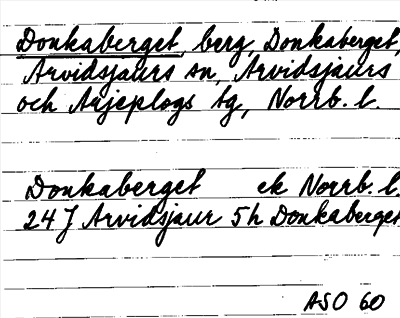 Donkaberget, berg, Donkaberget,
Arvidsjaurs sn, Arvidsjaurs
och Arjeplogs tg, Norrb. l.
Donkaberget ek Norrb. l.
24 J Arvidsjaur 5h Donkaberget
ASO 60